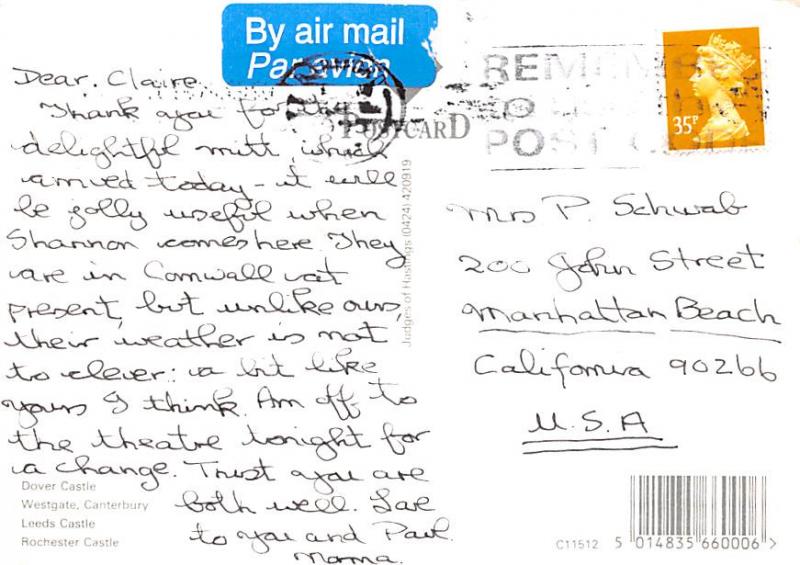 By air mail
Par avion
35P
REMEMBER
POSTCARD
POST CODE
Dear Claire,
Thank you for the
delightful mitt, which
arrived today - it will
be jolly useful when
Shannon comes here. They
are in Cornwall at
present, but unlike ours,
their weather is not
to clever: a bit like
yours I think. Am off to
the theatre tonight for
a change. Trust you are
both well. Love
to you and Paul.
Momma.
Judges of Hastings (0424) 420919
Mrs P. Schwab
200 John Street
Manhattan Beach
California 90266
U.S.A
Dover Castle
Westgate, Canterbury
Leeds Castle
Rochester Castle
C11512 5 014835 660006 >